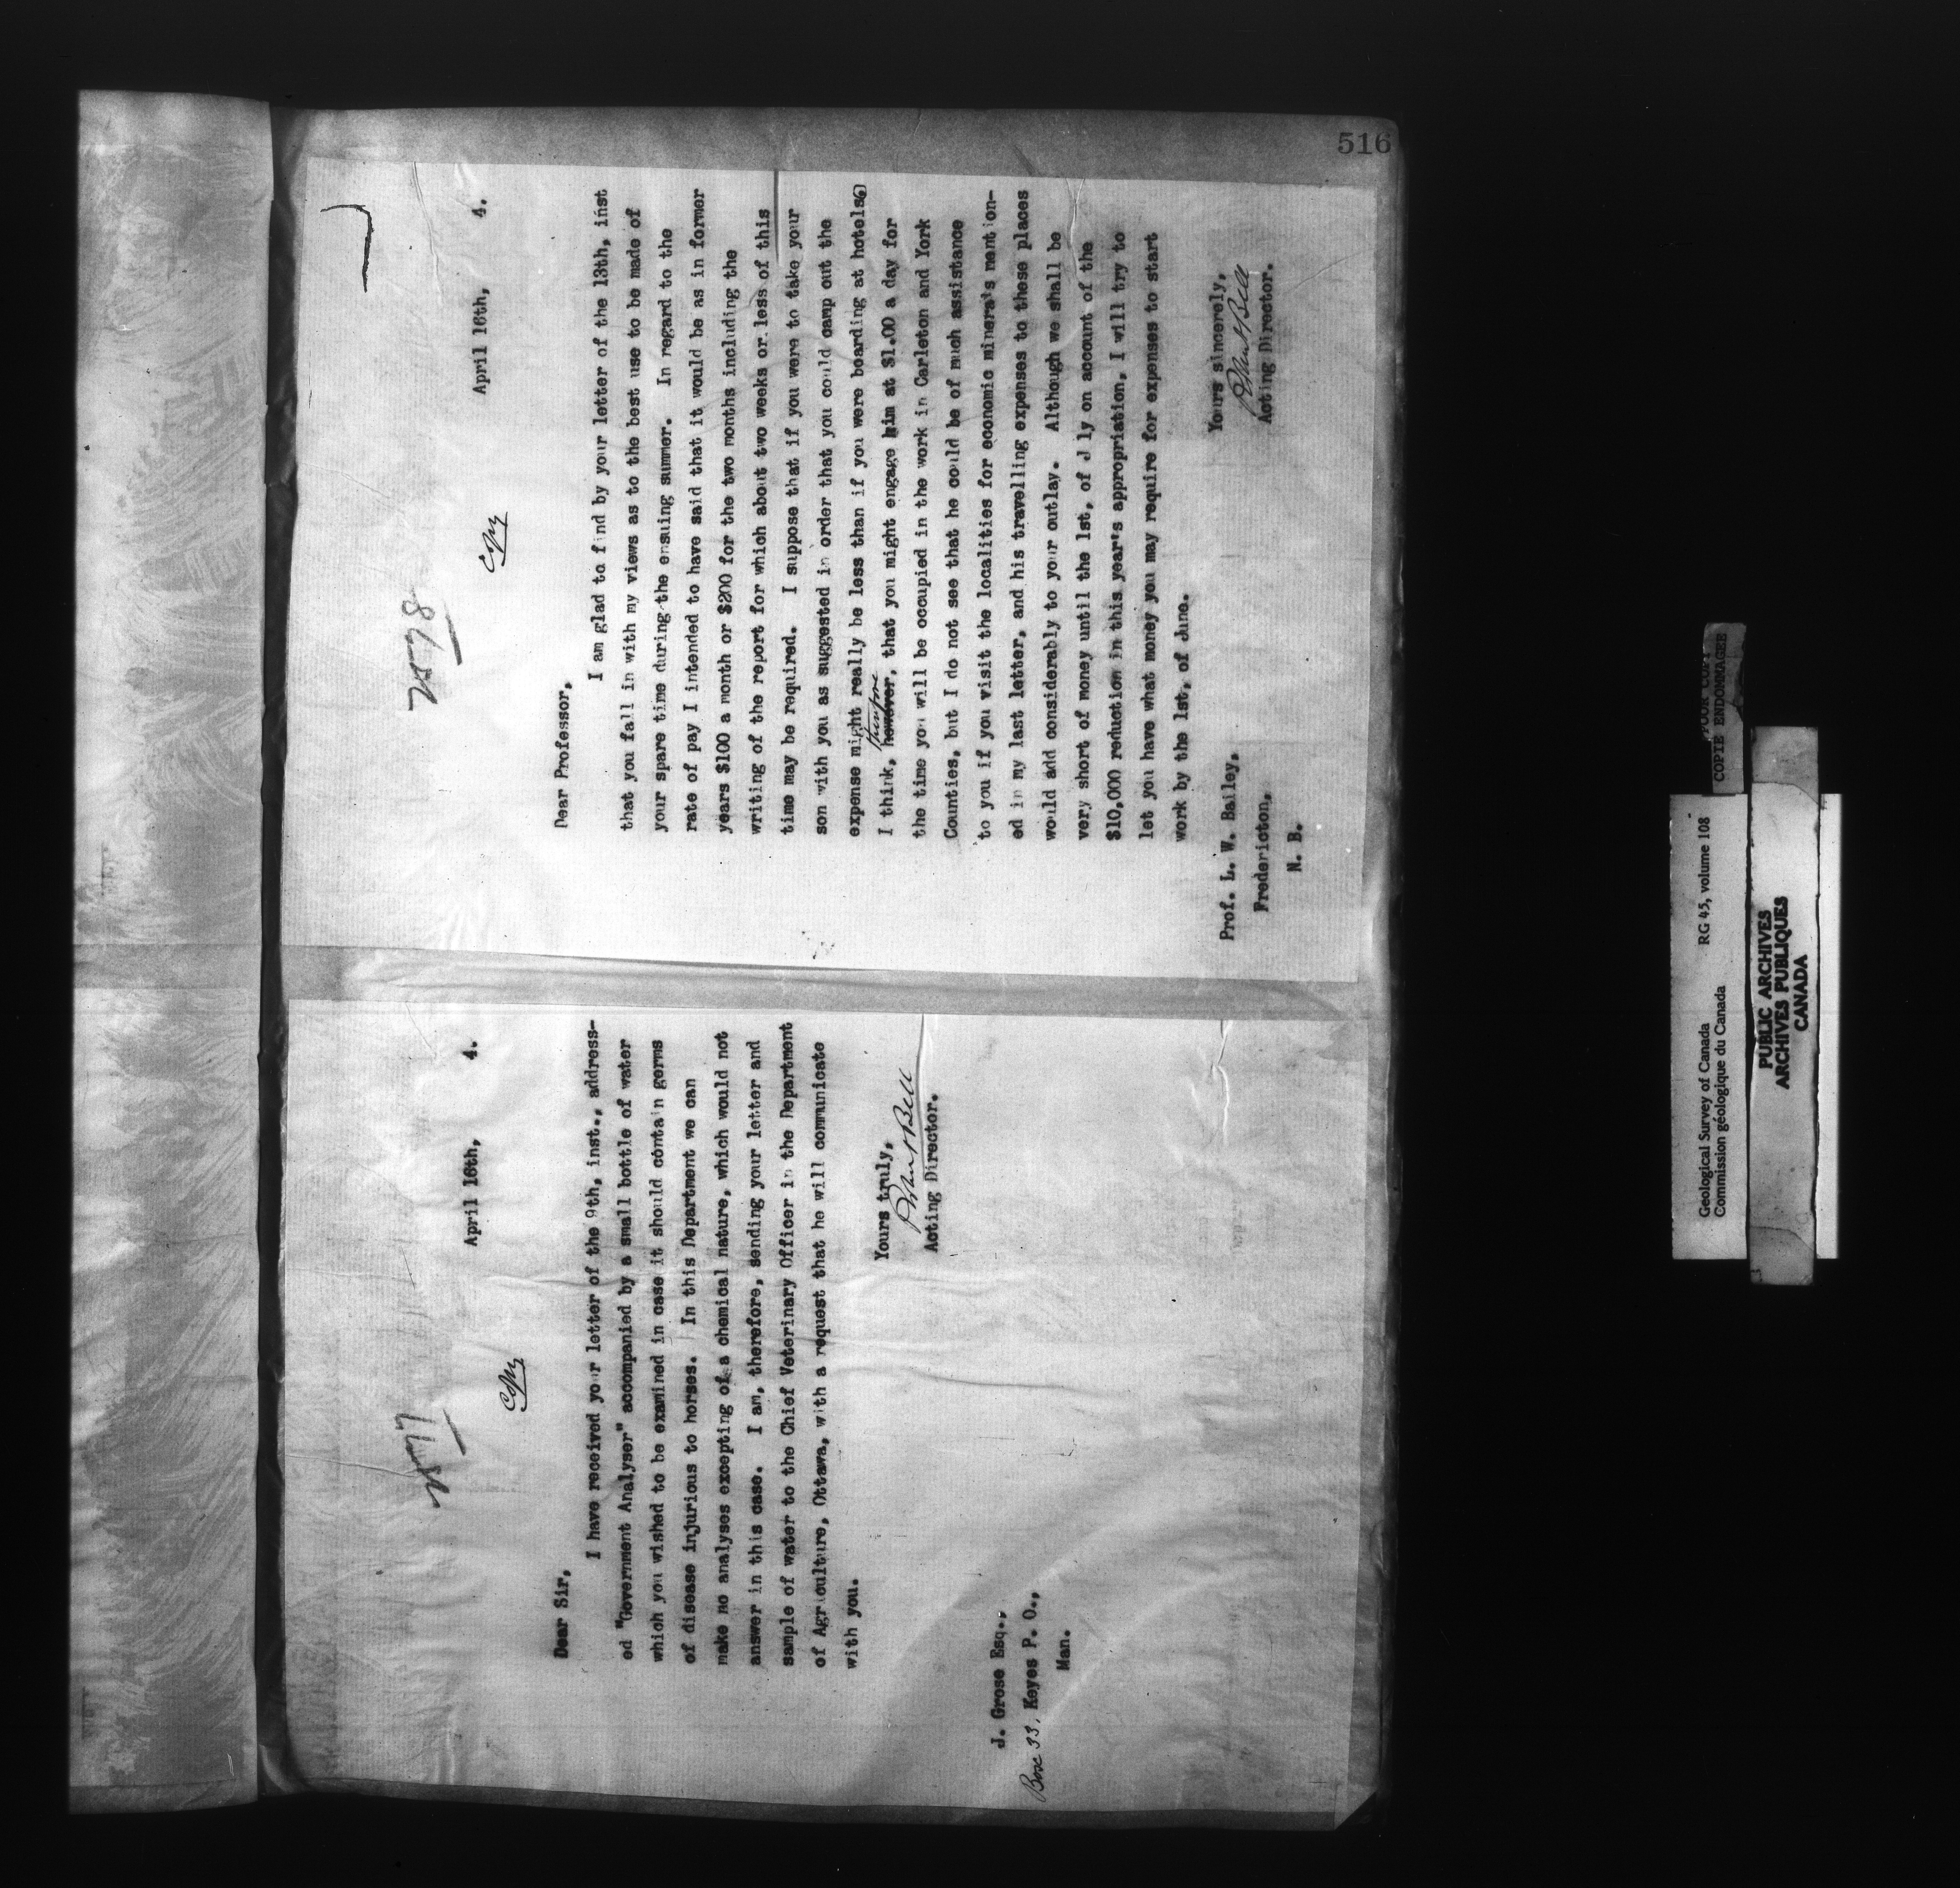 516
2577
Copy
April 16th, 4.
Dear Sir,
I have received your letter of the 9th, inst., address-
ed "Government Analyser" accompanied by a small bottle of water
which you wished to be examined in case it should contain germs
of disease injurious to horses. In this Department we can
make no analyses excepting of a chemical nature, which would not
answer in this case. I am, therefore, sending your letter and
sample of water to the Chief Veterinary Officer in the Department
of Agriculture, Ottawa, with a request that he will communicate
with you.
Yours truly,
Robert Bell
Acting Director.
J. Grose Esq.,
Box 33, Keyes P. O.,
Man.
2578
Copy
April 16th, 4.
Dear Professor,
I am glad to find by your letter of the 13th, inst
that you fall in with my views as to the best use to be made of
your spare time during the ensuing summer. In regard to the
rate of pay I intended to have said that it would be as in former
years $100 a month or $200 for the two months including the
writing of the report for which about two weeks or less of this
time may be required. I suppose that if you were to take your
son with you as suggested in order that you could camp out the
expense might really be less than if you were boarding at hotels
therefore
I think, however, that you might engage him at $1.00 a day for
the time you will be occupied in the work in Carleton and York
Counties, but I do not see that he could be of much assistance
to you if you visit the localities for economic minerals mention-
ed in my last letter, and his travelling expenses to these places
would add considerably to your outlay. Although we shall be
very short of money until the 1st, of J ly on account of the
$10,000 reduction in this year's appropriation, I will try to
let you have what money you may require for expenses to start
work by the 1st, of June.
Yours sincerely,
Robert Bell
Acting Director.
Prof. L. W. Bailey,
Fredericton,
N. B.
POOR COPY
COPIE ENDOMMAGEE
Geological Survey of Canada RG 45, volume 108
Commission géologique du Canada
PUBLIC ARCHIVES
ARCHIVES PUBLIQUES
CANADA